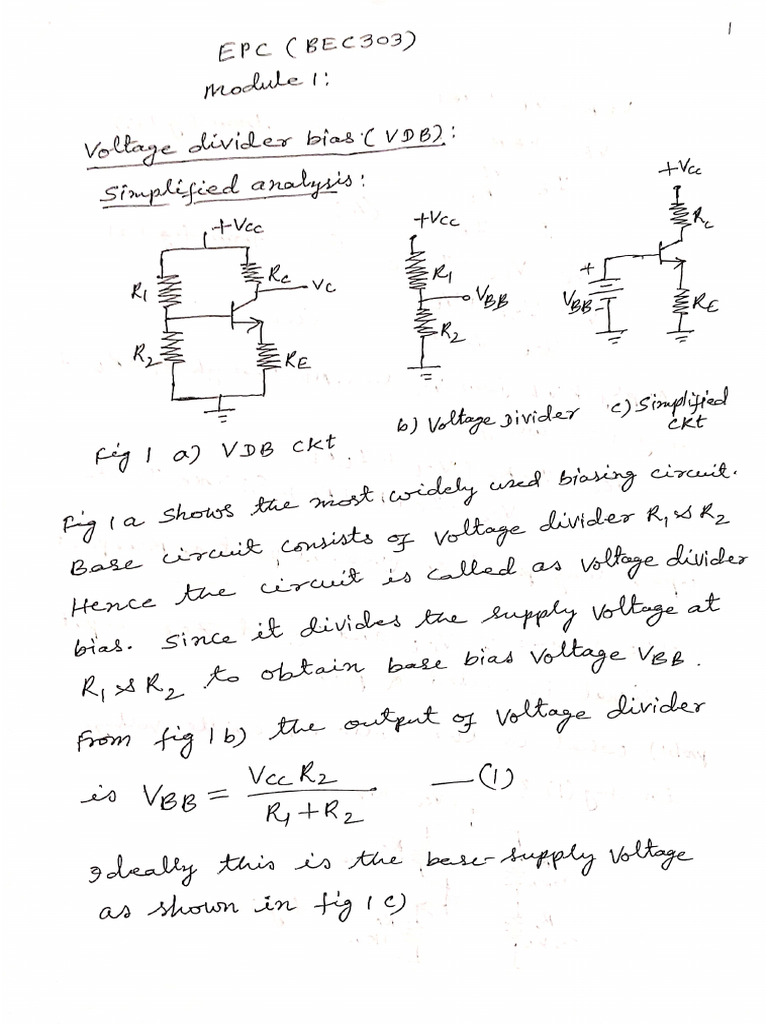 1
EPC (BEC303)
Module 1:
Voltage divider bias (VDB):
Simplified analysis:
+Vcc
R1
Rc
Vc
R2
RE
+Vcc
R1
VBB
R2
+Vcc
Rc
+
VBB
-
RE
Fig 1 a) VDB ckt
b) Voltage Divider
c) Simplified
ckt
Fig 1a shows the most widely used biasing circuit.
Base circuit consists of voltage divider R1 & R2
Hence the circuit is called as voltage divider
bias. Since it divides the supply voltage at
R1 & R2 to obtain base bias voltage VBB.
From fig 1b) the output of voltage divider
is VBB = Vcc R2 / R1 + R2 — (1)
Ideally this is the base-supply voltage
as shown in fig 1 c)